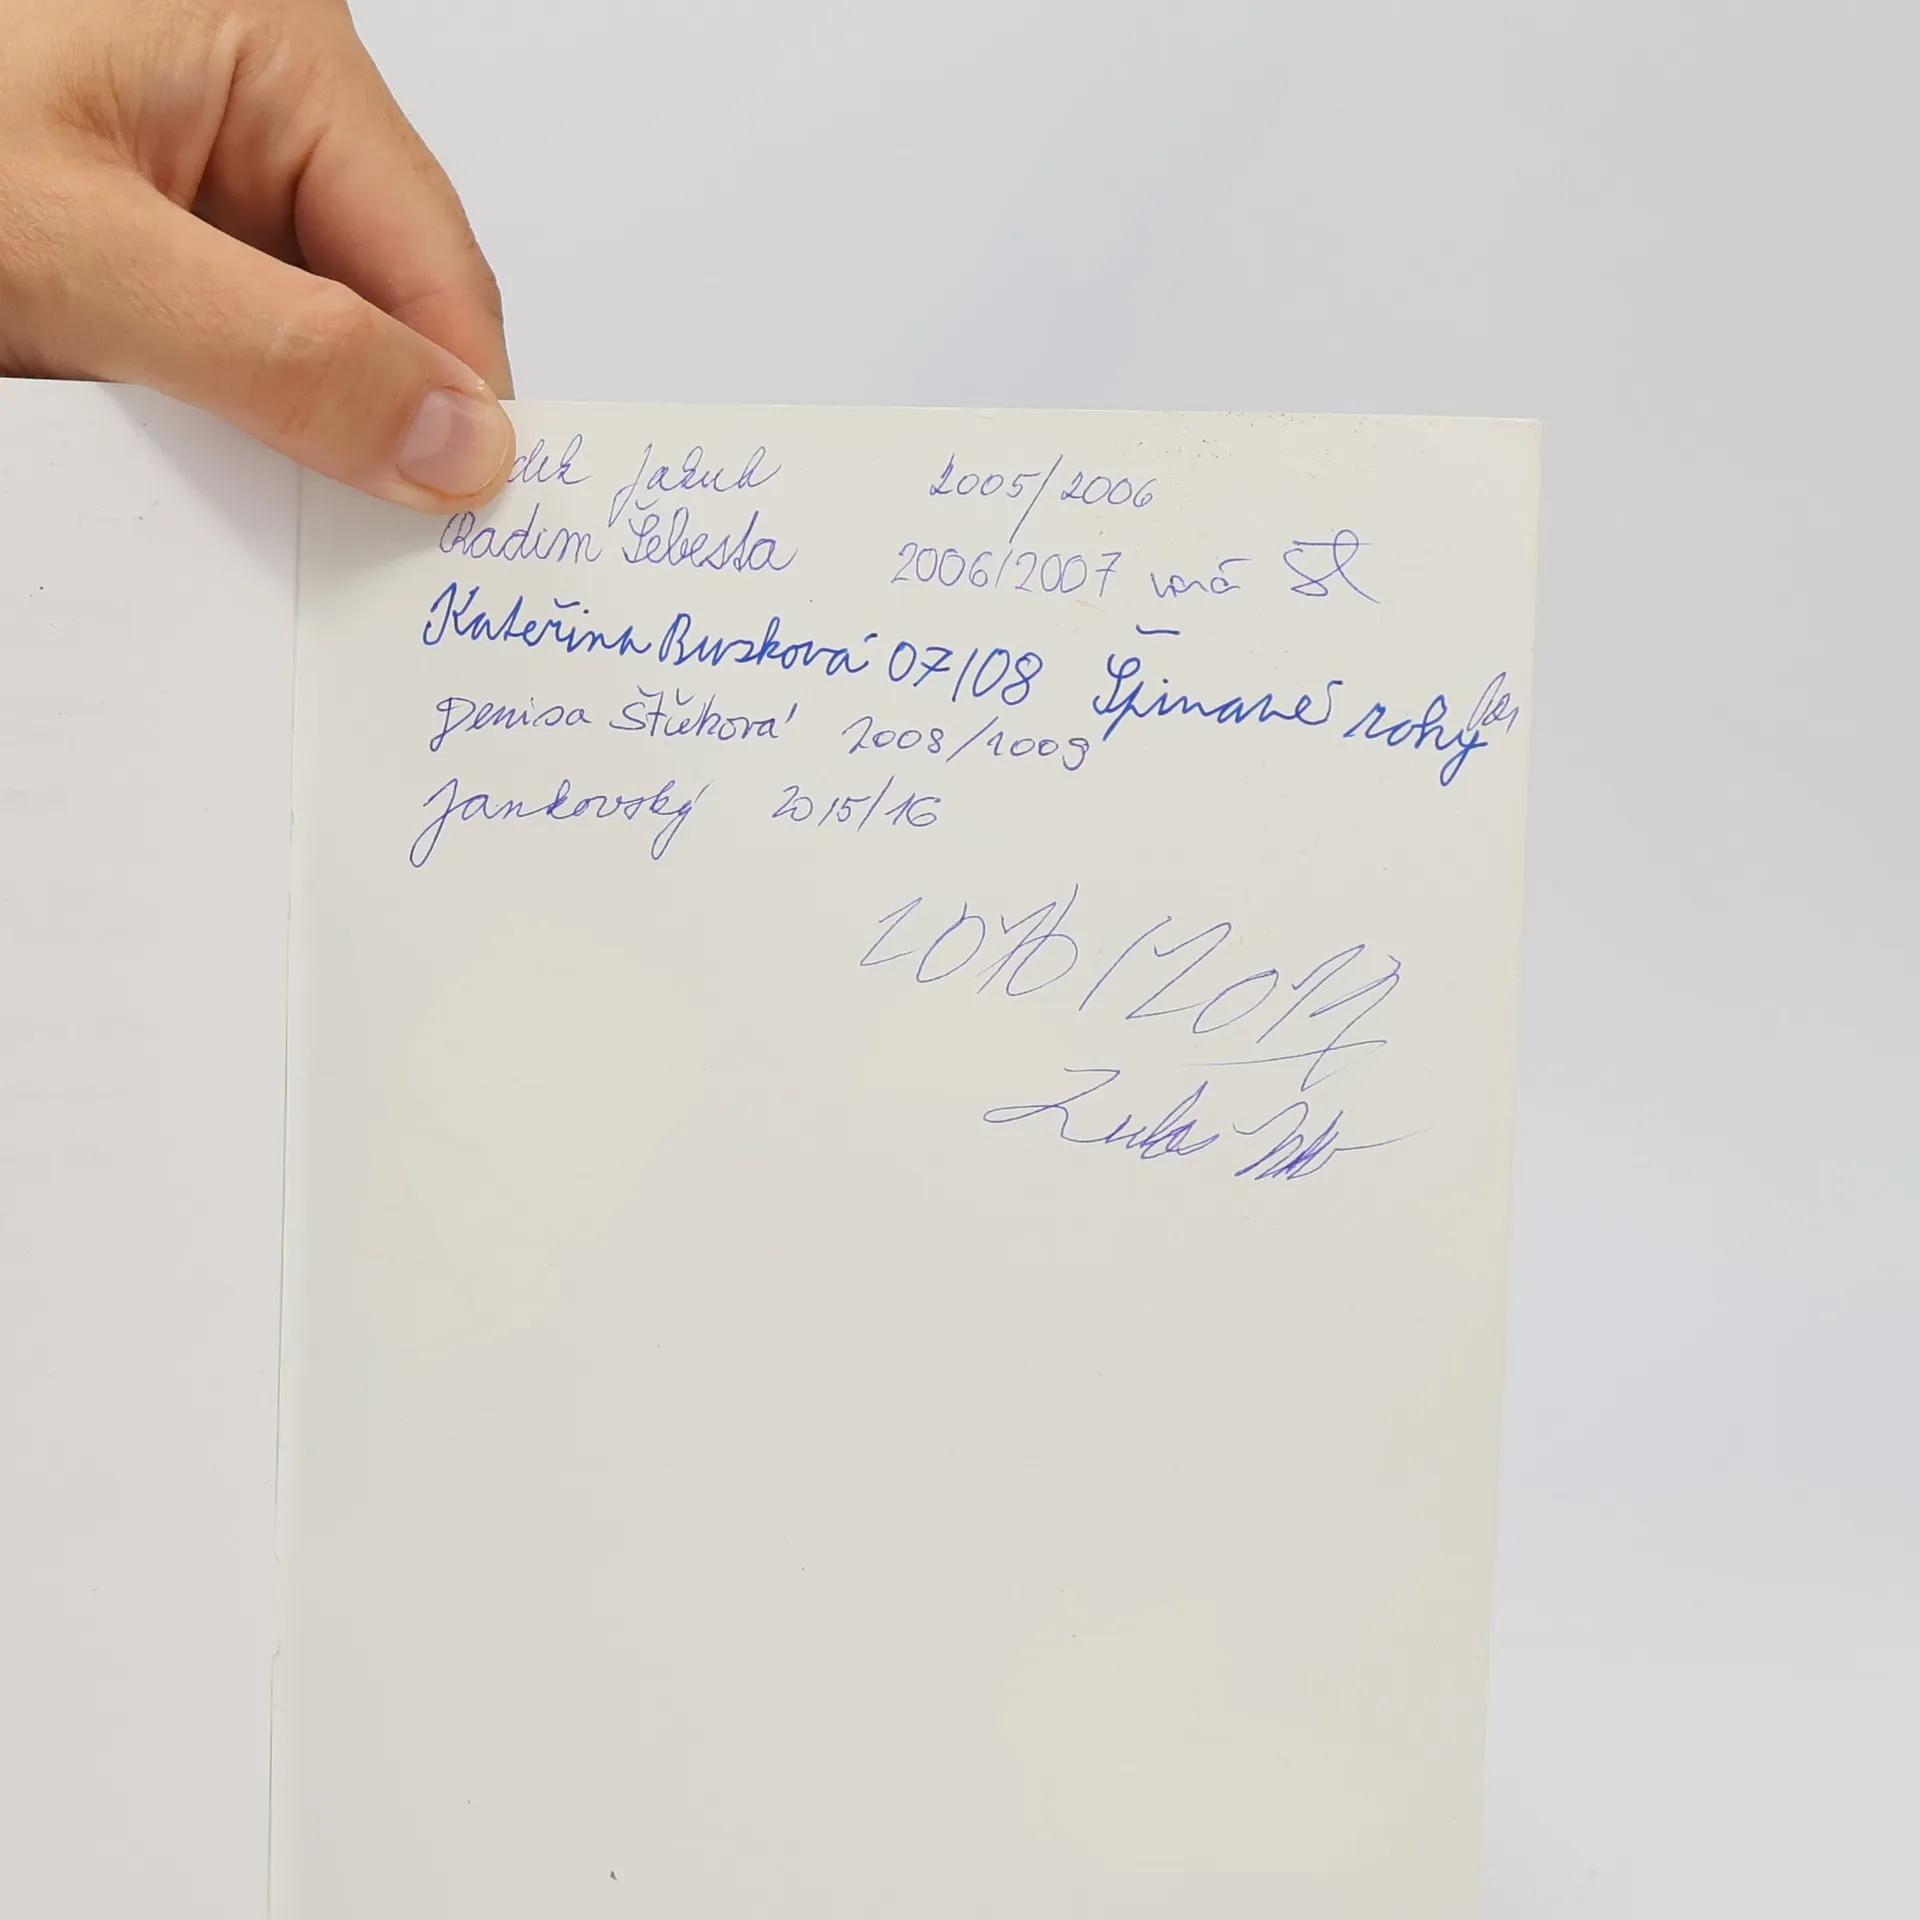 Jakub 2005/2006
Radim Šebesta 2006/2007
Kateřina Buzková 07/08 Špinavé rohy
Denisa 2008/2009
Jankovský 2015/16
2016/2017